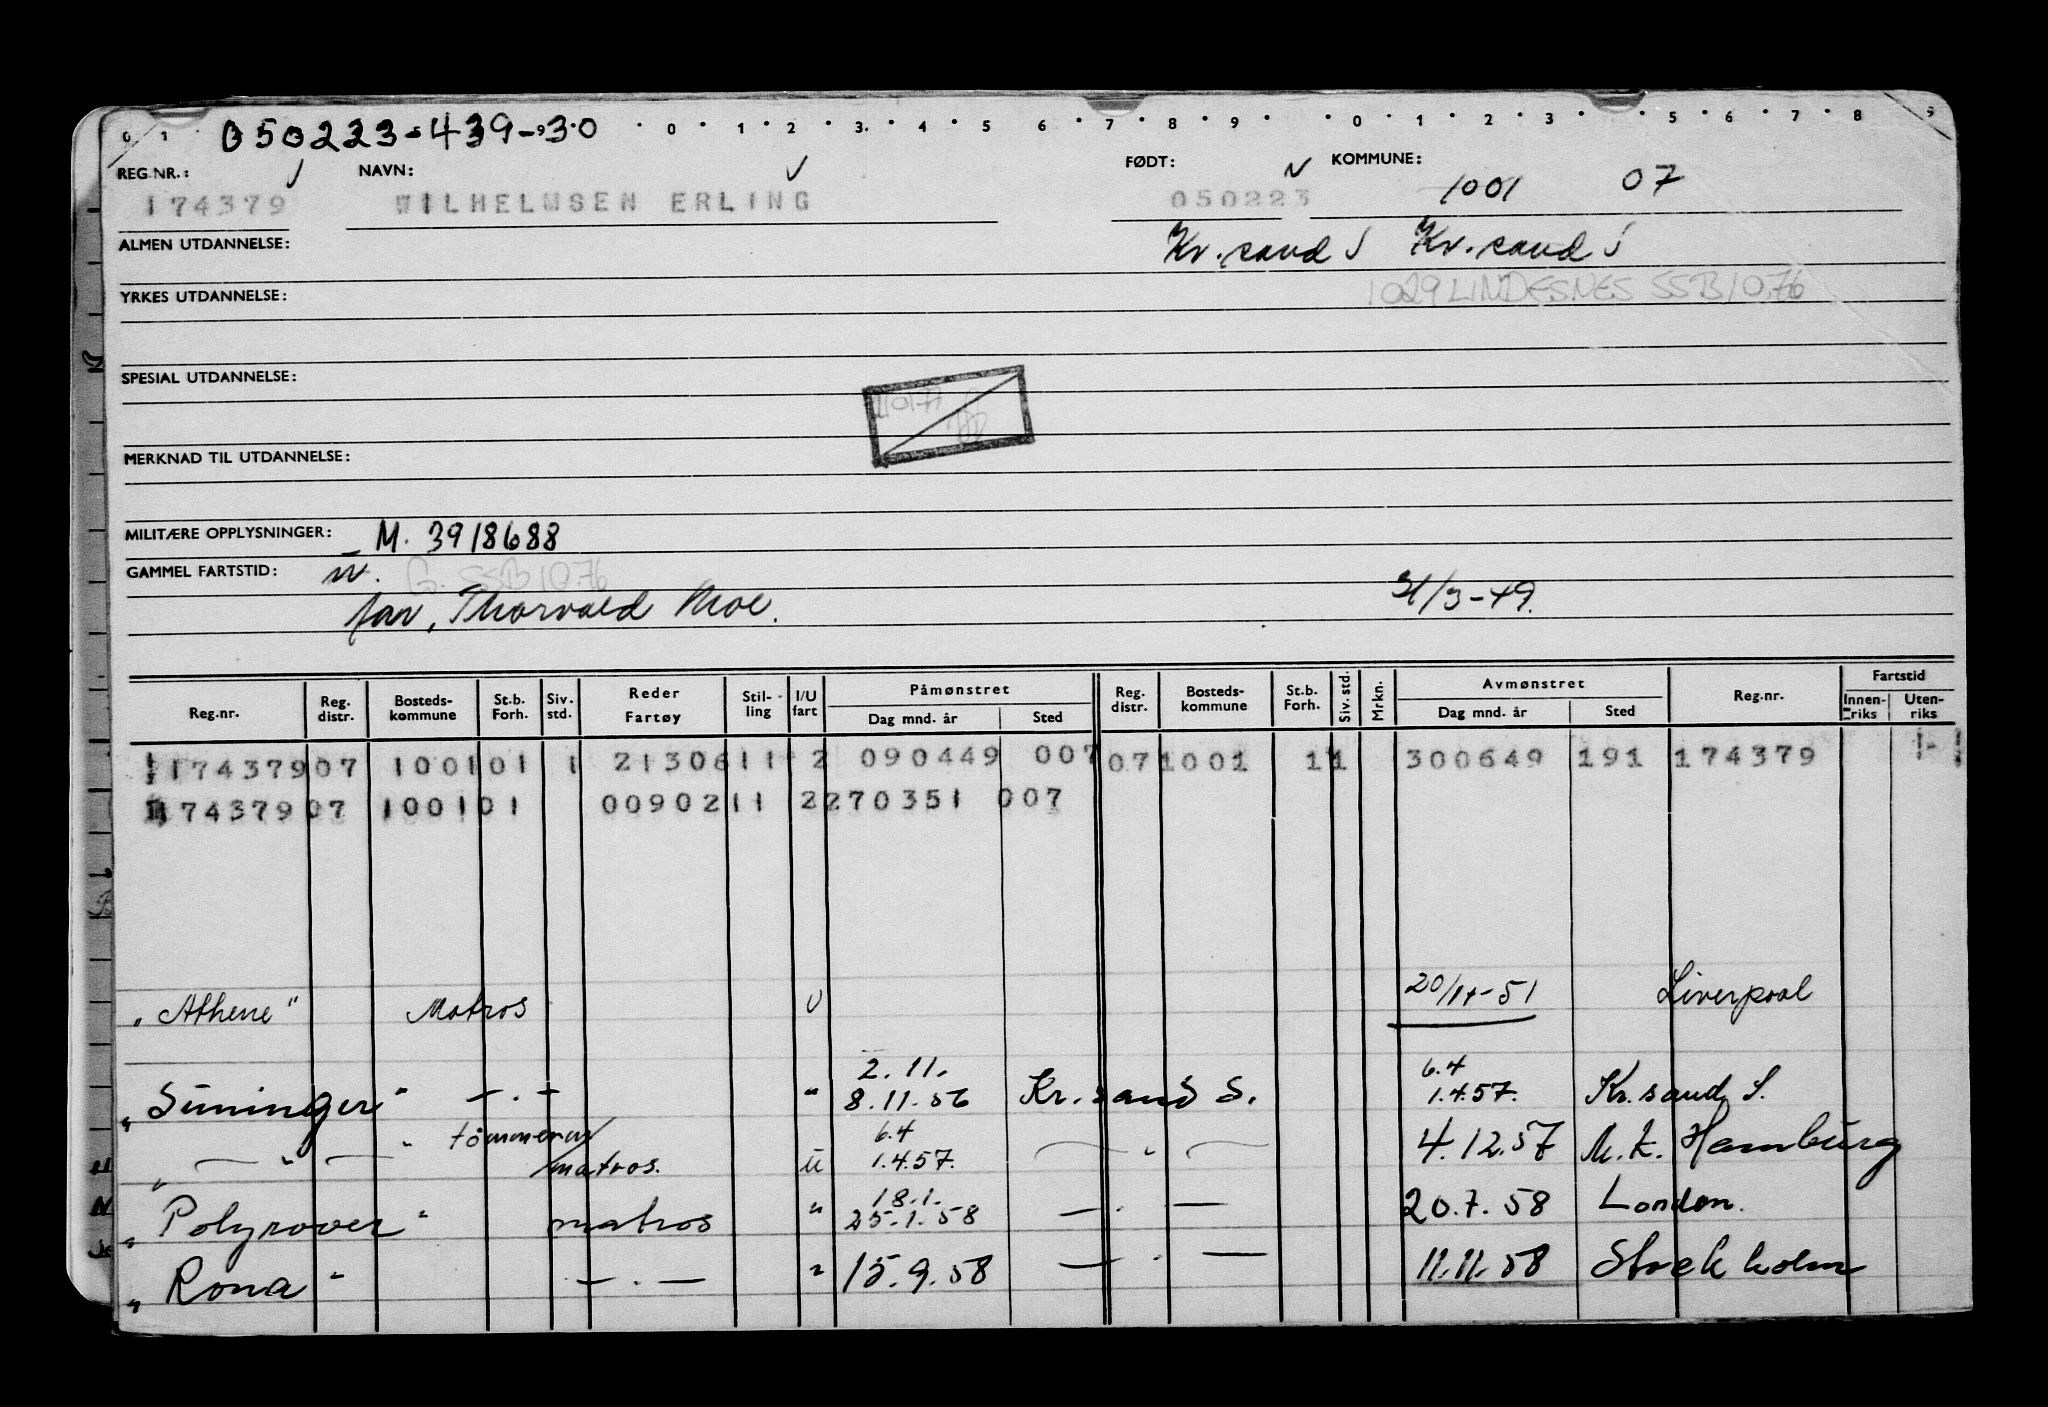 0 1 050223-439-30 0 1 2 3 4 5 6 7 8 9 0 1 2 3 5 6 7 8 9
REG.NR.: NAVN: FØDT: KOMMUNE:
174379 WILHELMSEN ERLING 050223 1001 07
ALMEN UTDANNELSE: Kr.sand S Kr.sand S
YRKES UTDANNELSE: 1029 LINDESNES SSB 10.76
SPESIAL UTDANNELSE:
MERKNAD TIL UTDANNELSE:
MILITÆRE OPPLYSNINGER: M. 3918688
GAMMEL FARTSTID: G. SSB 1076
far, Thorvald Moe. 31/3-49.
Reg.nr. Reg. distr. Bosteds-kommune St.b. Forh. Siv. std. Reder Fartøy Stil-ling I/U fart Påmønstret Dag mnd. år Sted Reg. distr. Bosteds-kommune St.b. Forh. Siv. std. Mrkn. Avmønstret Dag mnd. år Sted Reg.nr. Fartstid Innen-riks Uten-riks
174379 07 1001 01 1 21306 11 2 090449 007 07 1001 11 300649 191 174379
174379 07 1001 01 00902 11 2 270351 007
"Athene" Matros U 20/11-51 Liverpool
2.11. 6.4
"Suninger" — . — " 8.11.56 Kr.sand S. 1.4.57. Kr.sand S.
tömmerm/ 6.4
" — " — " matros. U 1.4.57. — " — 4.12.57 M.k. Hamburg
18.1.
"Polyrover" matros " 25.1.58 — . — 20.7.58 London.
"Rona" — . — " 15.9.58 — " — 11.11.58 Stockholm